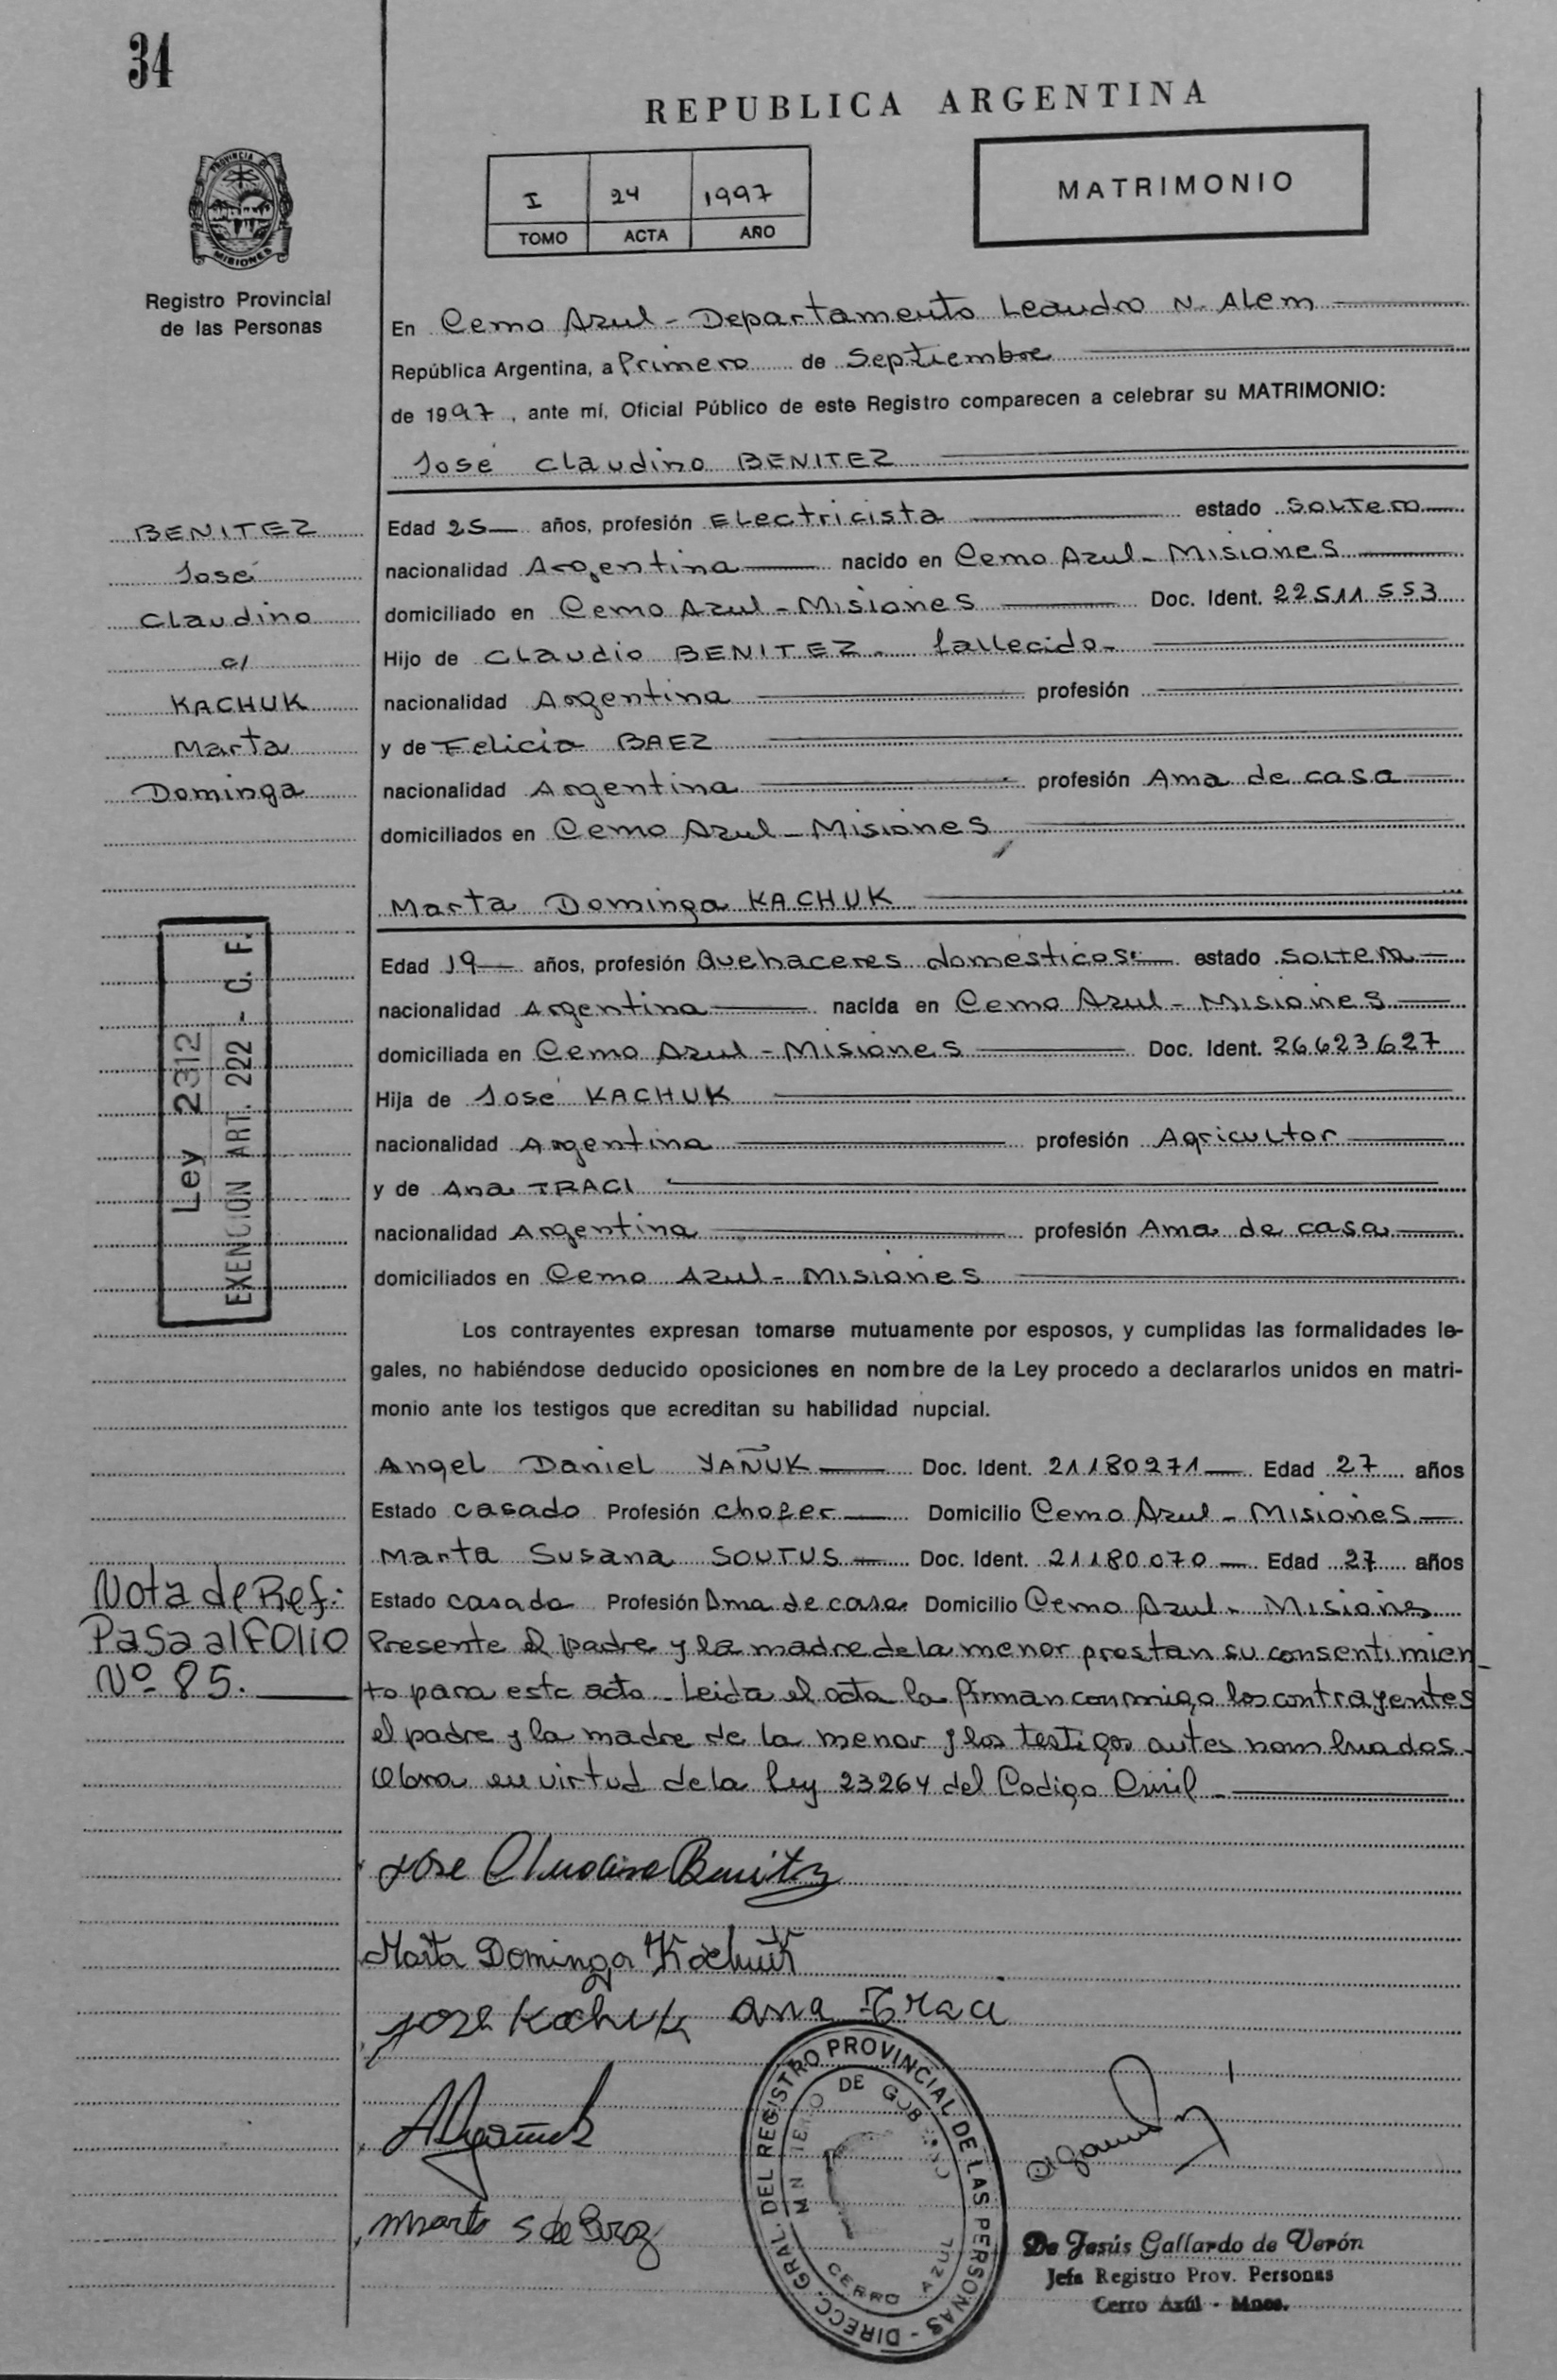 34
REPUBLICA ARGENTINA
PROVINCIA DE
MISIONES
Registro Provincial
de las Personas
I 24 1997
TOMO ACTA AÑO
MATRIMONIO
En Cerro Azul - Departamento Leandro N. Alem
República Argentina, a Primero de Septiembre
de 1997, ante mí, Oficial Público de este Registro comparecen a celebrar su MATRIMONIO:
José Claudino BENITEZ
BENITEZ
José
Claudino
c/
KACHUK
Marta
Dominga
Edad 25 años, profesión Electricista estado soltero
nacionalidad Argentina nacido en Cerro Azul - Misiones
domiciliado en Cerro Azul - Misiones Doc. Ident. 22511553
Hijo de Claudio BENITEZ - fallecido -
nacionalidad Argentina profesión
y de Felicia BAEZ
nacionalidad Argentina profesión Ama de casa
domiciliados en Cerro Azul - Misiones
Marta Dominga KACHUK
Ley 2312
EXENCION ART. 222 - C. F.
Edad 19 años, profesión Quehaceres domesticos estado soltera
nacionalidad Argentina nacida en Cerro Azul - Misiones
domiciliada en Cerro Azul - Misiones Doc. Ident. 26623627
Hija de José KACHUK
nacionalidad Argentina profesión Agricultor
y de Ana TRACI
nacionalidad Argentina profesión Ama de casa
domiciliados en Cerro Azul - Misiones
Los contrayentes expresan tomarse mutuamente por esposos, y cumplidas las formalidades le-
gales, no habiéndose deducido oposiciones en nombre de la Ley procedo a declararlos unidos en matri-
monio ante los testigos que acreditan su habilidad nupcial.
Angel Daniel YAÑUK Doc. Ident. 21180271 Edad 27 años
Estado casado Profesión chofer Domicilio Cerro Azul - Misiones
Marta Susana SOUTUS Doc. Ident. 21180070 Edad 27 años
Estado casada Profesión Ama de casa Domicilio Cerro Azul - Misiones
Nota de Ref:
Pasa al FOlio
Nº 85.
Presente el padre y la madre de la menor prestan su consentimien
to para este acto - Leida el acta la firman conmigo los contrayentes
el padre y la madre de la menor y los testigos antes nombrados -
Obra en virtud de la ley 23264 del Codigo Civil -
Jose Claudino Benitez
Marta Dominga Kachuk
José Kachuk Ana Traci
ADyañuk
Marta S de
DIRECC. GRAL. DEL REGISTRO PROVINCIAL DE LAS PERSONAS -
MINISTERIO DE GOBIERNO
CERRO AZUL
De Jesús Gallardo de Verón
Jefa Registro Prov. Personas
Cerro Azúl - Mnes.